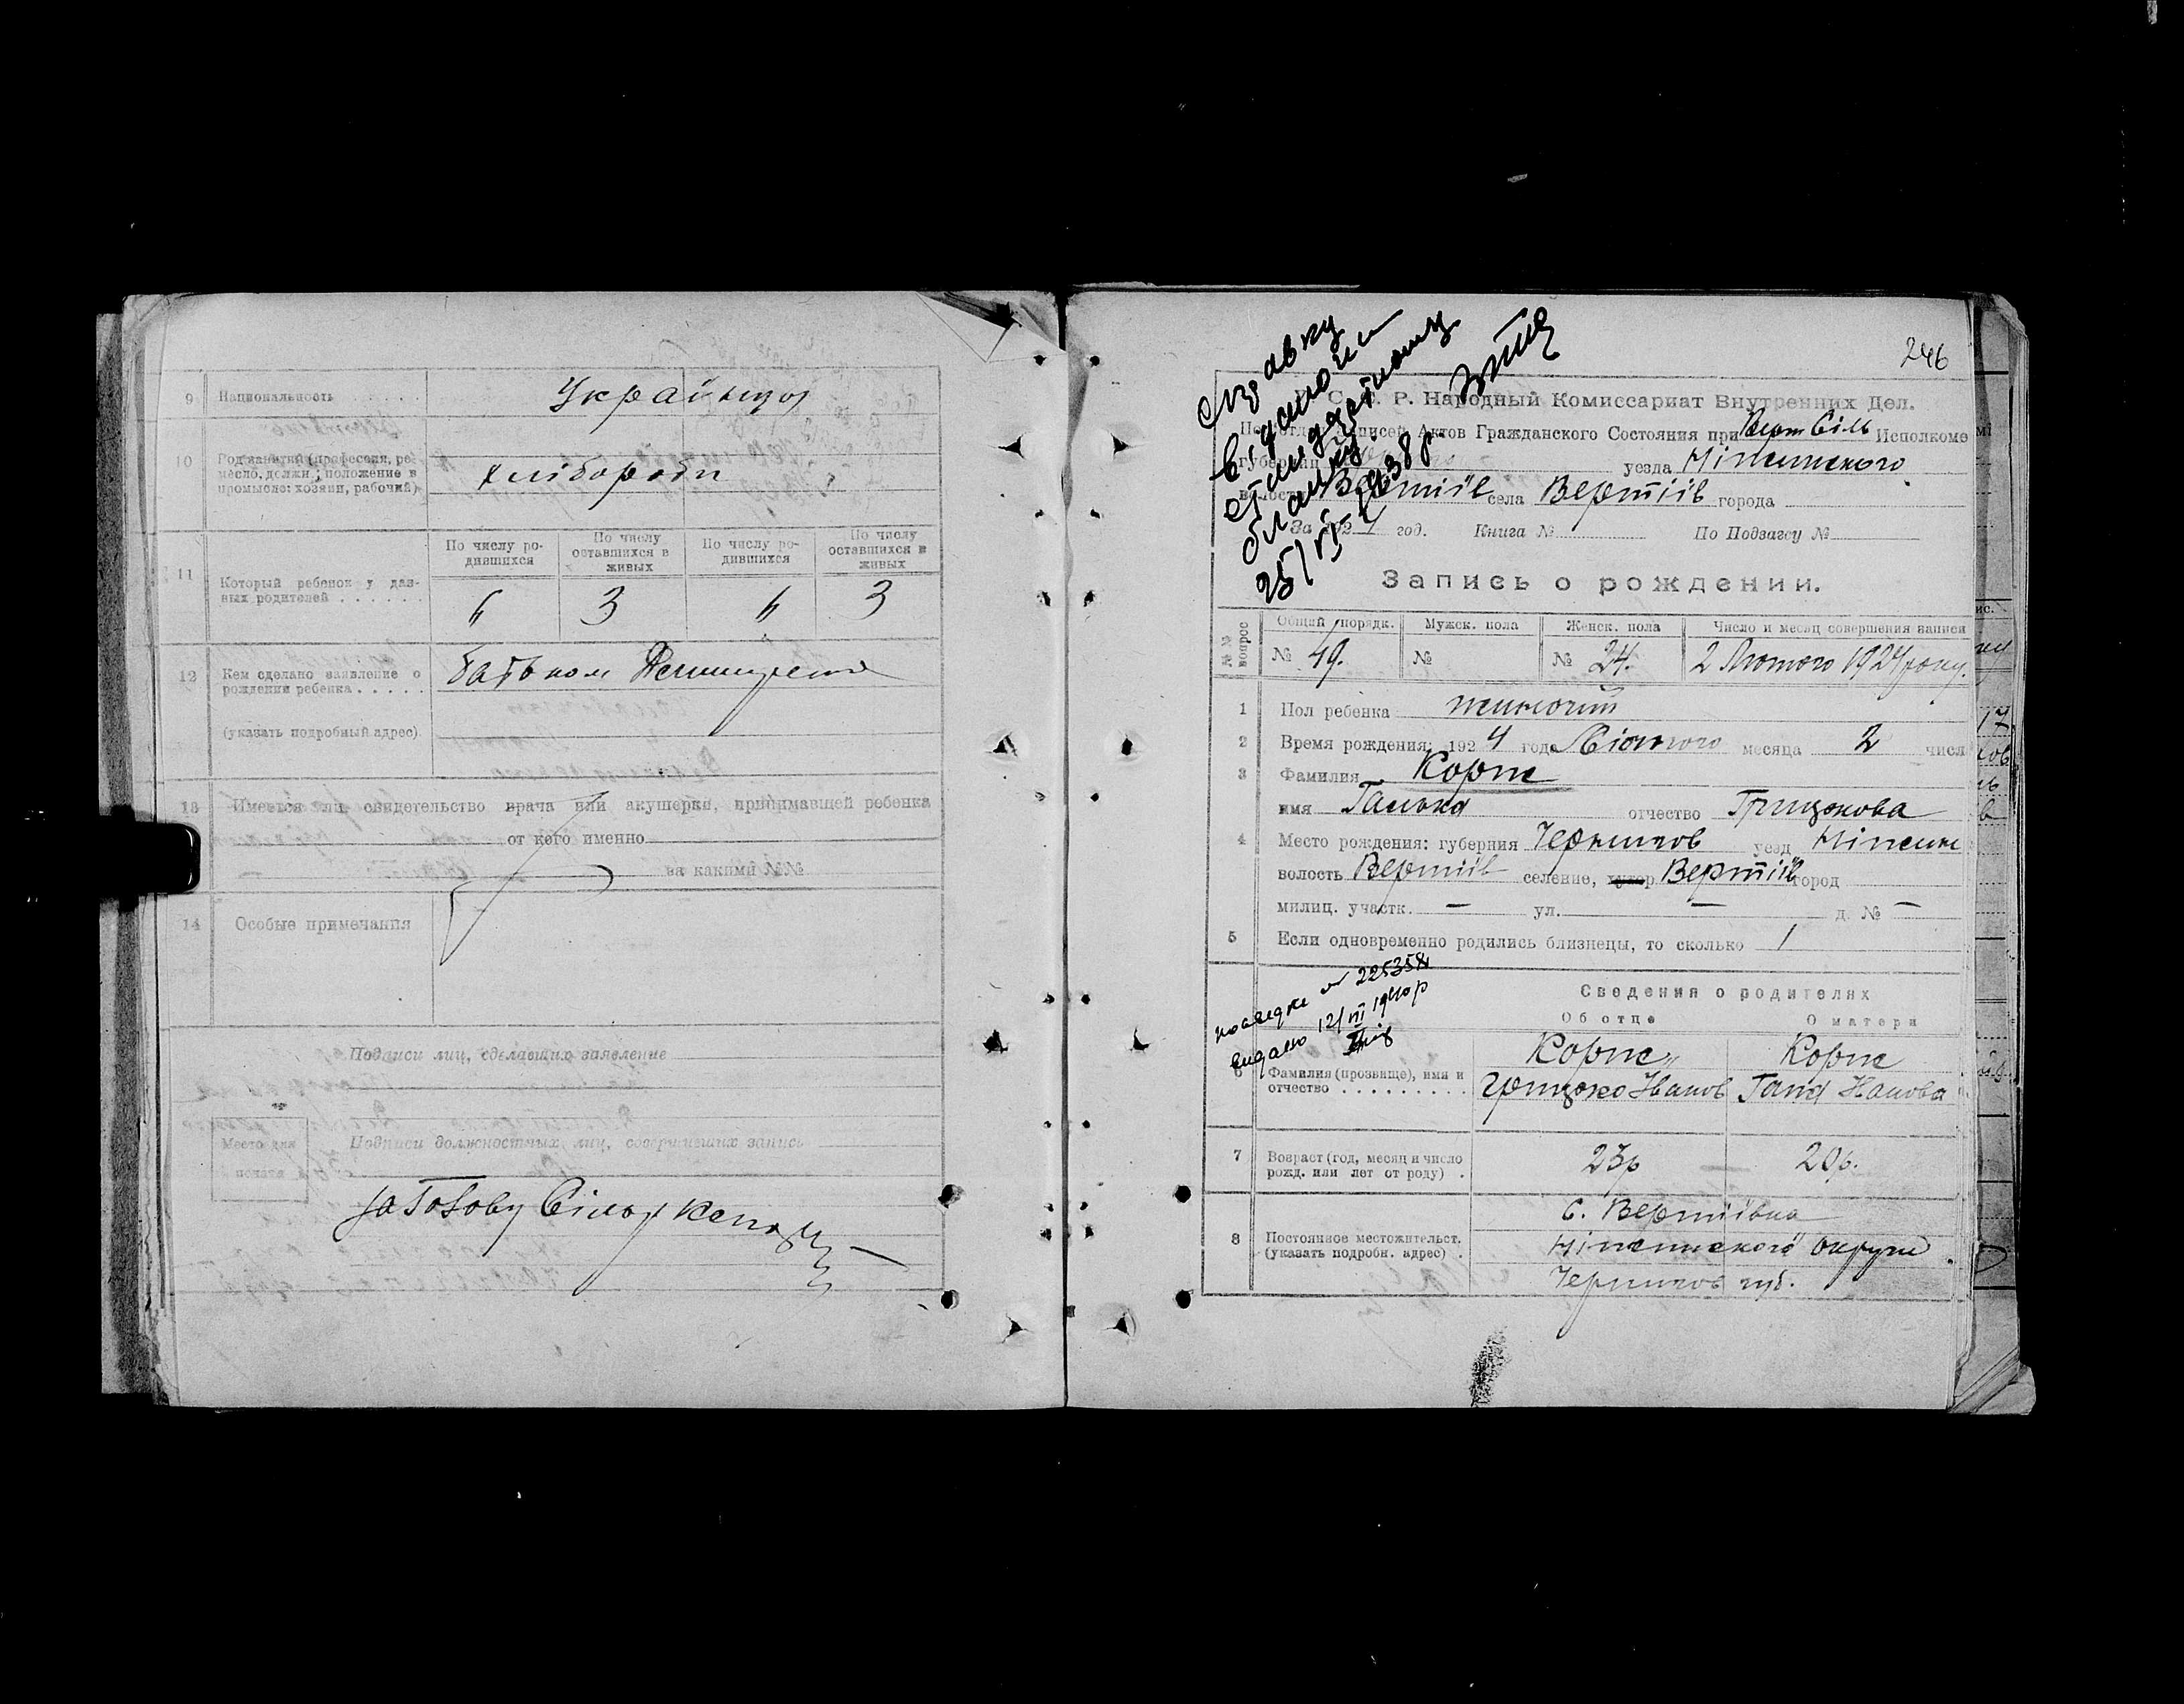 9 Национальность
Українцы
10 Род занятий (профессия, ремесло, должн., положение в промысле: хозяин, рабочий)
хлібороби
11 Который ребенок у данных родителей
По числу родившихся
По числу оставшихся в живых
По числу родившихся
По числу оставшихся в живых
6 3 6 3
12 Кем сделано заявление о рождении ребенка
Батьком
(указать подробный адрес)
13 Имеется ли свидетельство врача или акушерки, принимавшей ребенка
от кого именно
за какими №№
14 Особые примечания
Подписи лиц, сделавших заявление
Место для печати
Подписи должностных лиц, совершивших запись
246
С. С. Р. Народный Комиссариат Внутренних Дел.
Записей Актов Гражданского Состояния при Верт Сіль Исполкоме
губернии уезда Ніженського
Вертіїв села Вертіїв города
За 1924 год. Книга № По Подзагсу №
25/ 1938 р
Запись о рождении.
№№ вопрос
Общий порядк. Мужск. пола Женск. пола Число и месяц совершения записи
№ 49. № № 24. 2 Лютого 1924 року.
1 Пол ребенка жиночий
2 Время рождения: 1924 года Лютого месяца 2 числ
3 Фамилия Корж
имя Ганька отчество Грицькова
4 Место рождения: губерния Чернигов уезд Ніжин
волость Вертіїв селение, хутор Вертіїв город
милиц. участк. — ул. — д. № —
5 Если одновременно родились близнецы, то сколько 1
№ 225358
видано 12/VII 1940 р
Сведения о родителях
Об отце О матери
6 Фамилия (прозвище), имя и отчество
Корж Корж
Грицько Иванов Ганна Иванова
7 Возраст (год, месяц и число рожд. или лет от роду)
23 р 20 р.
8 Постоянное местожительст. (указать подробн. адрес)
с. Вертіївка
Ніженського округи
Чернигов губ.